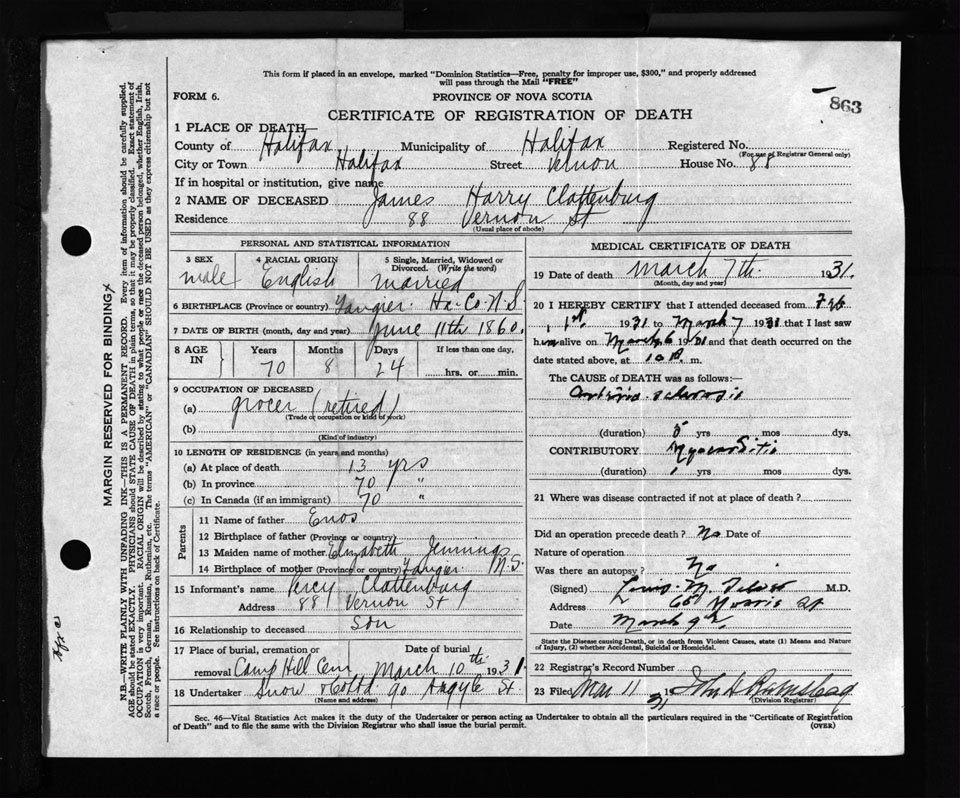 This form if placed in an envelope, marked "Dominion Statistics—Free, penalty for improper use, $300," and properly addressed
will pass through the Mail "FREE"
FORM 6.
PROVINCE OF NOVA SCOTIA
863
CERTIFICATE OF REGISTRATION OF DEATH
1 PLACE OF DEATH
County of Halifax Municipality of Halifax Registered No.
(For use of Registrar General only)
City or Town Halifax Street Vernon House No. 88
If in hospital or institution, give name
2 NAME OF DECEASED James Harry Clattenburg
Residence 88 Vernon St
(Usual place of abode)
PERSONAL AND STATISTICAL INFORMATION
3 SEX 4 RACIAL ORIGIN 5 Single, Married, Widowed or
Divorced. (Write the word)
male English married
6 BIRTHPLACE (Province or country) Tangier Ha-Co-N.S.
7 DATE OF BIRTH (month, day and year) June 11th 1860.
8 AGE IN Years Months Days If less than one day,
70 8 24 hrs. or min.
9 OCCUPATION OF DECEASED
(a) grocer (retired)
(Trade or occupation or kind of work)
(b)
(Kind of industry)
10 LENGTH OF RESIDENCE (in years and months)
(a) At place of death 13 yrs
(b) In province 70 "
(c) In Canada (if an immigrant) 70 "
Parents
11 Name of father Enos
12 Birthplace of father (Province or country)
13 Maiden name of mother Elizabeth Jennings
14 Birthplace of mother (Province or country) Tangier N.S.
15 Informant's name Percy Clattenburg
Address 88 Vernon St
16 Relationship to deceased son
17 Place of burial, cremation or Date of burial
removal Camp Hill Cem March 10th 1931
18 Undertaker Snow & Co Ltd 90 Argyle St.
(Name and address)
MEDICAL CERTIFICATE OF DEATH
19 Date of death March 7th. 1931.
(Month, day and year)
20 I HEREBY CERTIFY that I attended deceased from Feb
1st 1931 to March 7 1931 that I last saw
him alive on March 6 1931 and that death occurred on the
date stated above, at 10 P. m.
The CAUSE of DEATH was as follows:—
Arterio-sclerosis
(duration) 5 yrs mos dys.
CONTRIBUTORY Myocarditis
(duration) 1 yrs mos dys.
21 Where was disease contracted if not at place of death?
Did an operation precede death? No Date of
Nature of operation
Was there an autopsy? No
(Signed) Louis M. Silver M.D.
Address 65 Morris St
Date March 9th
State the Disease causing Death, or in death from Violent Causes, state (1) Means and Nature
of Injury, (2) whether Accidental, Suicidal or Homicidal.
22 Registrar's Record Number
23 Filed Mar 11 1931 John A
(Division Registrar)
Sec. 46—Vital Statistics Act makes it the duty of the Undertaker or person acting as Undertaker to obtain all the particulars required in the "Certificate of Registration
of Death" and to file the same with the Division Registrar who shall issue the burial permit.
(OVER)
MARGIN RESERVED FOR BINDING
N.B.—WRITE PLAINLY WITH UNFADING INK—THIS IS A PERMANENT RECORD. Every item of information should be carefully supplied.
AGE should be stated EXACTLY. PHYSICIANS should STATE CAUSE OF DEATH in plain terms, so that it may be properly classified. Exact statement of
OCCUPATION is very important. RACIAL ORIGIN will be described by stating to what people or race the deceased person belonged, whether English, Irish,
Scotch, French, German, Russian, Ruthenian, etc. The terms "AMERICAN" or "CANADIAN" SHOULD NOT BE USED as they express citizenship but not
a race or people. See instructions on back of Certificate.